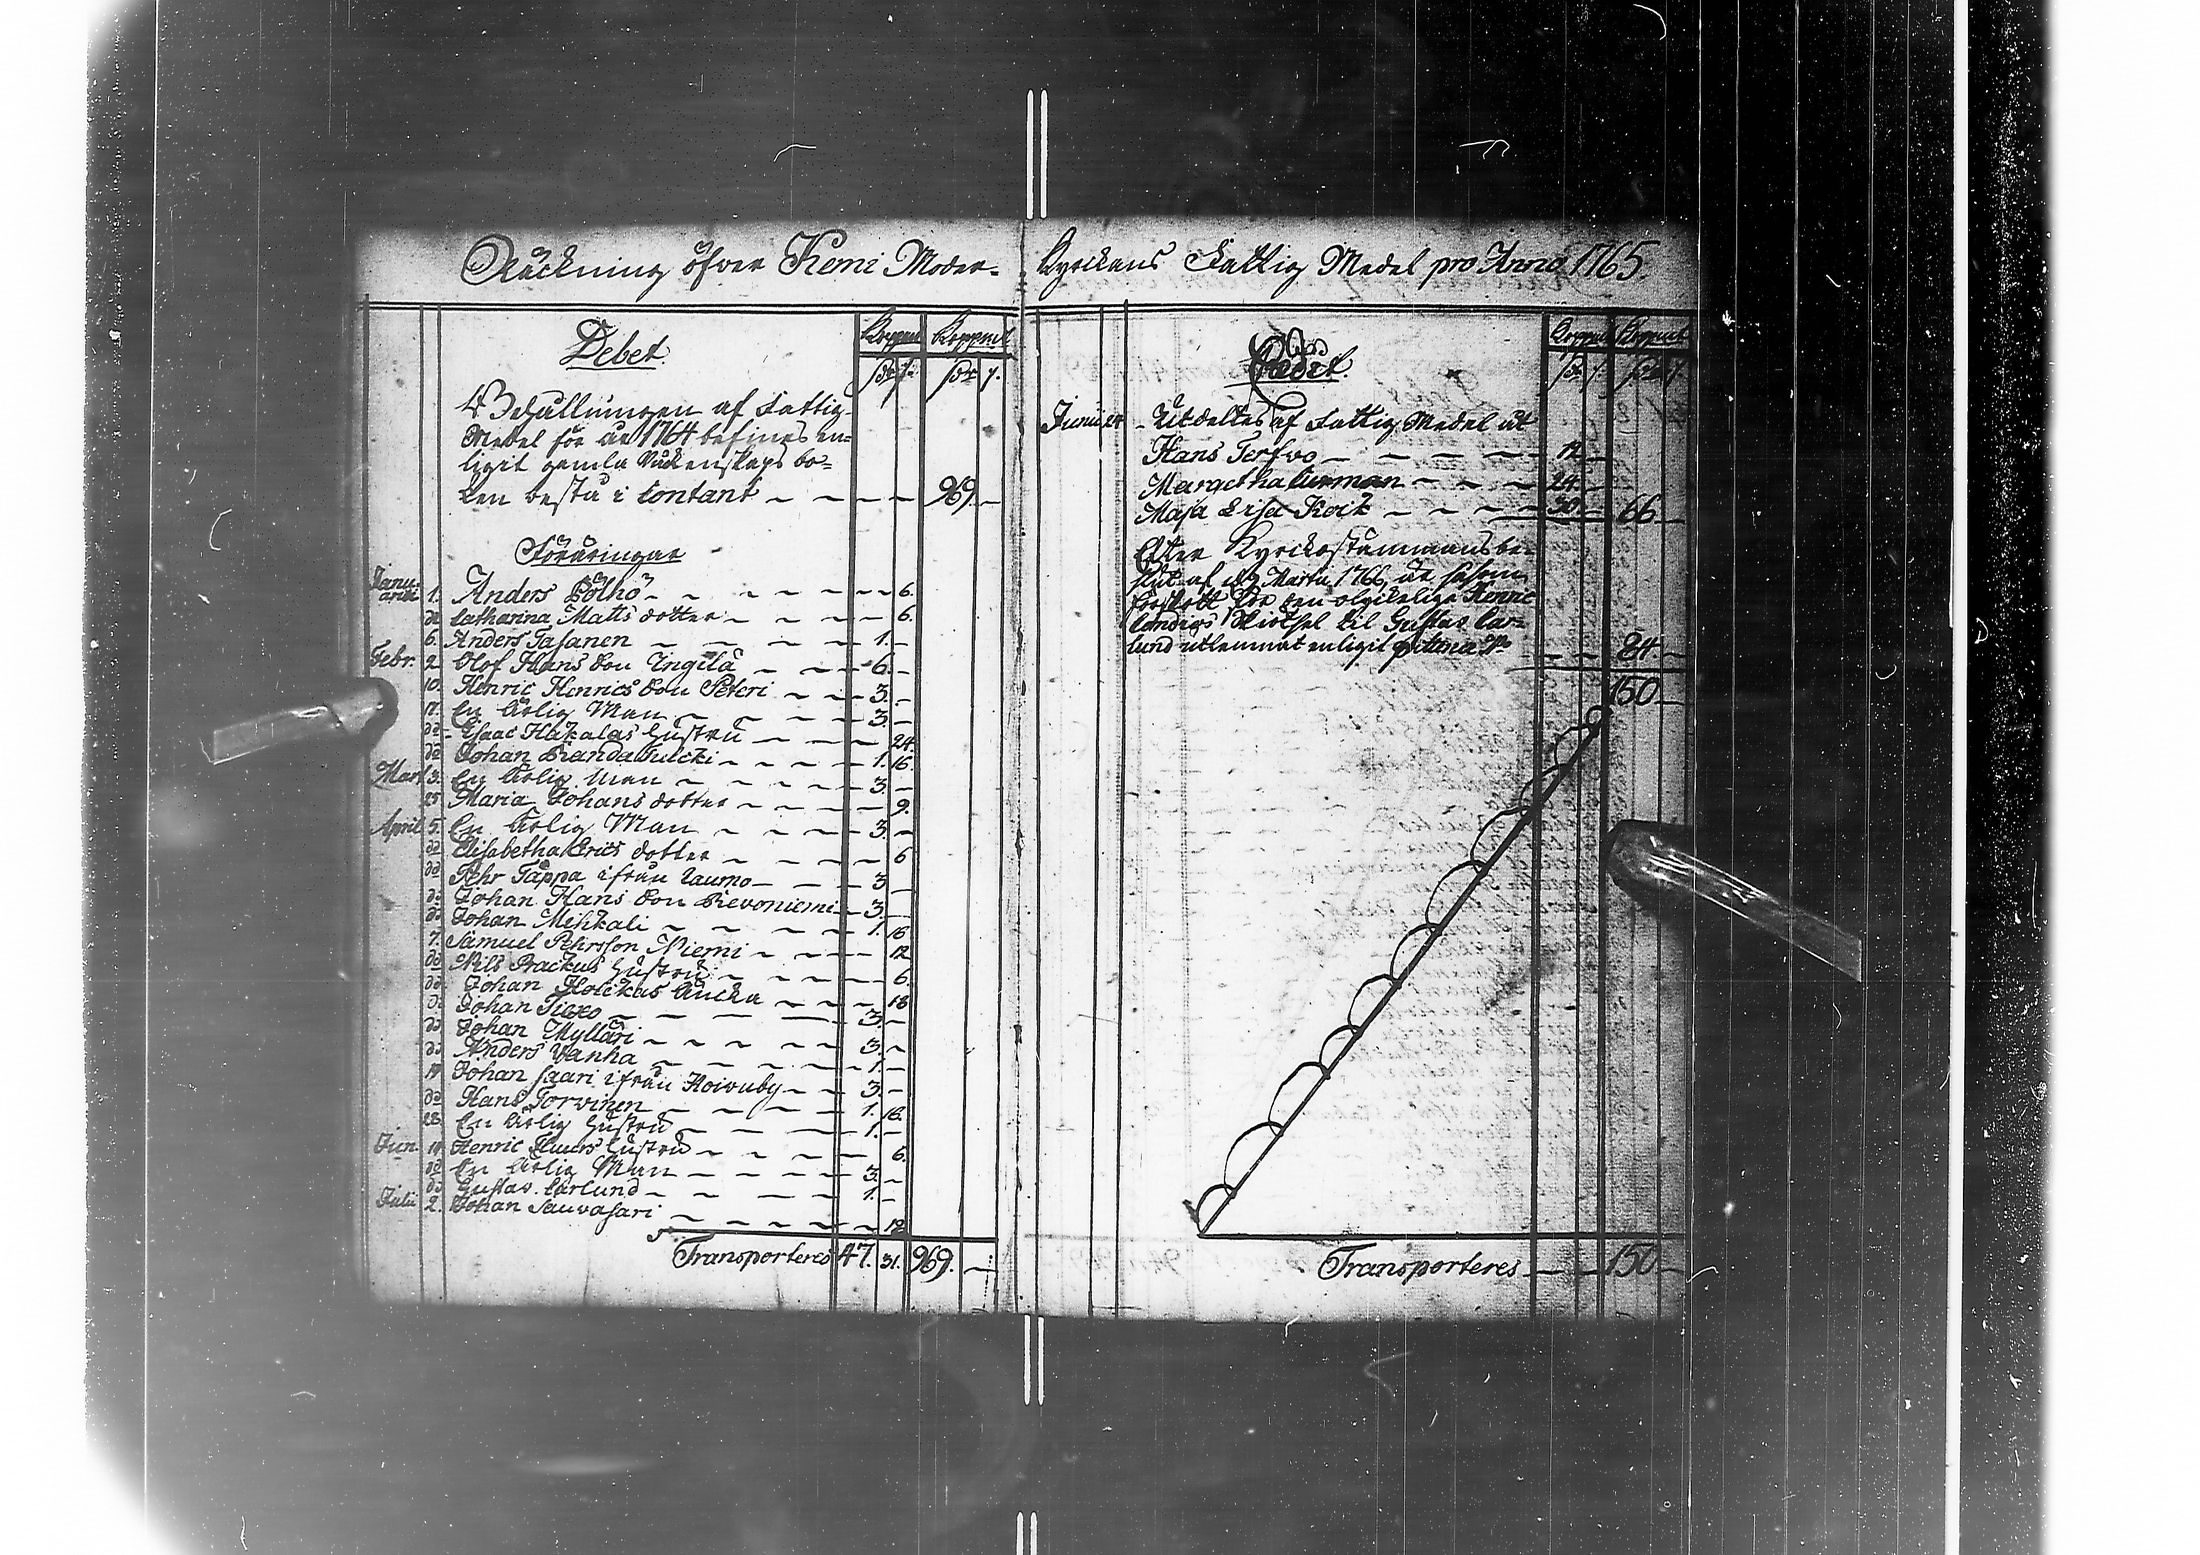 Räckning öfver Kemi Moder-
Kyrckans Fattig Medel pro Anno 1765.
Debet
Koppmt Koppmt
Behållningen af Fattig-
Medel för år 1764 befines en-
ligit gamla Räkenskaps bo-
ken bestå i Contant 969. —
Föräringar
Janu-
arii 1. Anders Pölhö 6.
do Catharina Matts dotter 6.
6. Anders Tasanen 1. —
Febr. 2. Olof Hans Son Ingilä 6. —
10. Henric Henrics Son Peteri 3. —
17. En Ärlig Man 3. —
do Isaac Hakalas Hustru 24.
do Johan Randa 1. 16.
Mart. 3. En Ärlig Man 3. —
25. Maria Johans dotter 9.
April 5. En Ärlig Man 3. —
do Elisabetha Erics dotter 6
do Pehr Tappa ifrån Laumo 3 —
do Johan Hans Son Revoniemi 3. —
do Johan Mihkali 1. 16
7. Samuel Pehrsson Niemi 12
do Nils Prackus Hustru 6
do Johan Änkia 18
do Johan Tiero 3. —
do Johan Mylläri 3. —
do Anders Vanha 1. —
14 Johan Saari ifrån 3. —
do Hans Torvinen 1. 16.
28. En Ärlig Hustru 1. —
Jun. 14 Henric Hustru 6.
do En Ärlig Man 3. —
do Gustav Carlund 1. —
Julii 2. Johan Sauvasari 12
Transporteres 47. 31. 969. —
Credit
Koppmt Koppmt
Junii 24 Utdeltes af Fattig Medel åt
Hans Terfvo 12 —
Margetha Curman 24 —
Maja Lisa Koik 30 — 66 —
Efter Kyrckostämmans be-
slut af d. Martii 1766, är såsom
förskott för den olyckelige Henric
til Gustav Car-
lund utlemnat enligit 84 —
150 —
Transporteres — 150 —